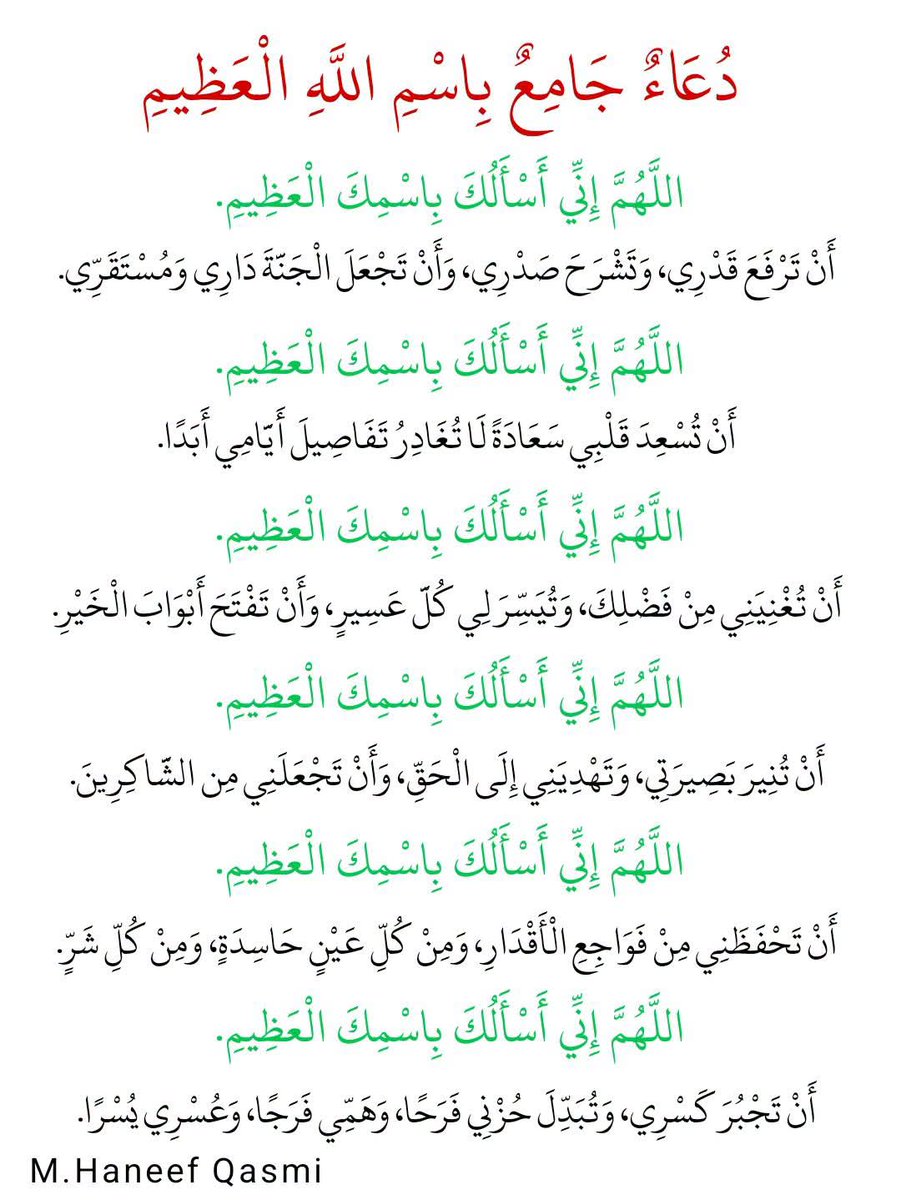 دُعَاءٌ جَامِعٌ بِاسْمِ اللَّهِ الْعَظِيمِ
اللَّهُمَّ إِنِّي أَسْأَلُكَ بِاسْمِكَ الْعَظِيمِ.
أَنْ تَرْفَعَ قَدْرِي، وَتَشْرَحَ صَدْرِي، وَأَنْ تَجْعَلَ الْجَنّةَ دَارِي وَمُسْتَقَرِّي.
اللَّهُمَّ إِنِّي أَسْأَلُكَ بِاسْمِكَ الْعَظِيمِ.
أَنْ تُسْعِدَ قَلْبِي سَعَادَةً لَا تُغَادِرُ تَفَاصِيلَ أَيّامِي أَبَدًا.
اللَّهُمَّ إِنِّي أَسْأَلُكَ بِاسْمِكَ الْعَظِيمِ.
أَنْ تُغْنِيَنِي مِنْ فَضْلِكَ، وَتُيَسِّرَ لِي كُلّ عَسِيرٍ، وَأَنْ تَفْتَحَ أَبْوَابَ الْخَيْرِ.
اللَّهُمَّ إِنِّي أَسْأَلُكَ بِاسْمِكَ الْعَظِيمِ.
أَنْ تُنِيرَ بَصِيرَتِي، وَتَهْدِيَنِي إِلَى الْحَقِّ، وَأَنْ تَجْعَلَنِي مِن الشّاكِرِينَ.
اللَّهُمَّ إِنِّي أَسْأَلُكَ بِاسْمِكَ الْعَظِيمِ.
أَنْ تَحْفَظَنِي مِنْ فَوَاجِعِ الْأَقْدَارِ، وَمِنْ كُلِّ عَيْنٍ حَاسِدَةٍ، وَمِنْ كُلِّ شَرٍّ.
اللَّهُمَّ إِنِّي أَسْأَلُكَ بِاسْمِكَ الْعَظِيمِ.
أَنْ تَجْبُرَ كَسْرِي، وَتُبَدِّلَ حُزْنِي فَرَحًا، وَهَمِّي فَرَجًا، وَعُسْرِي يُسْرًا.
M.Haneef Qasmi